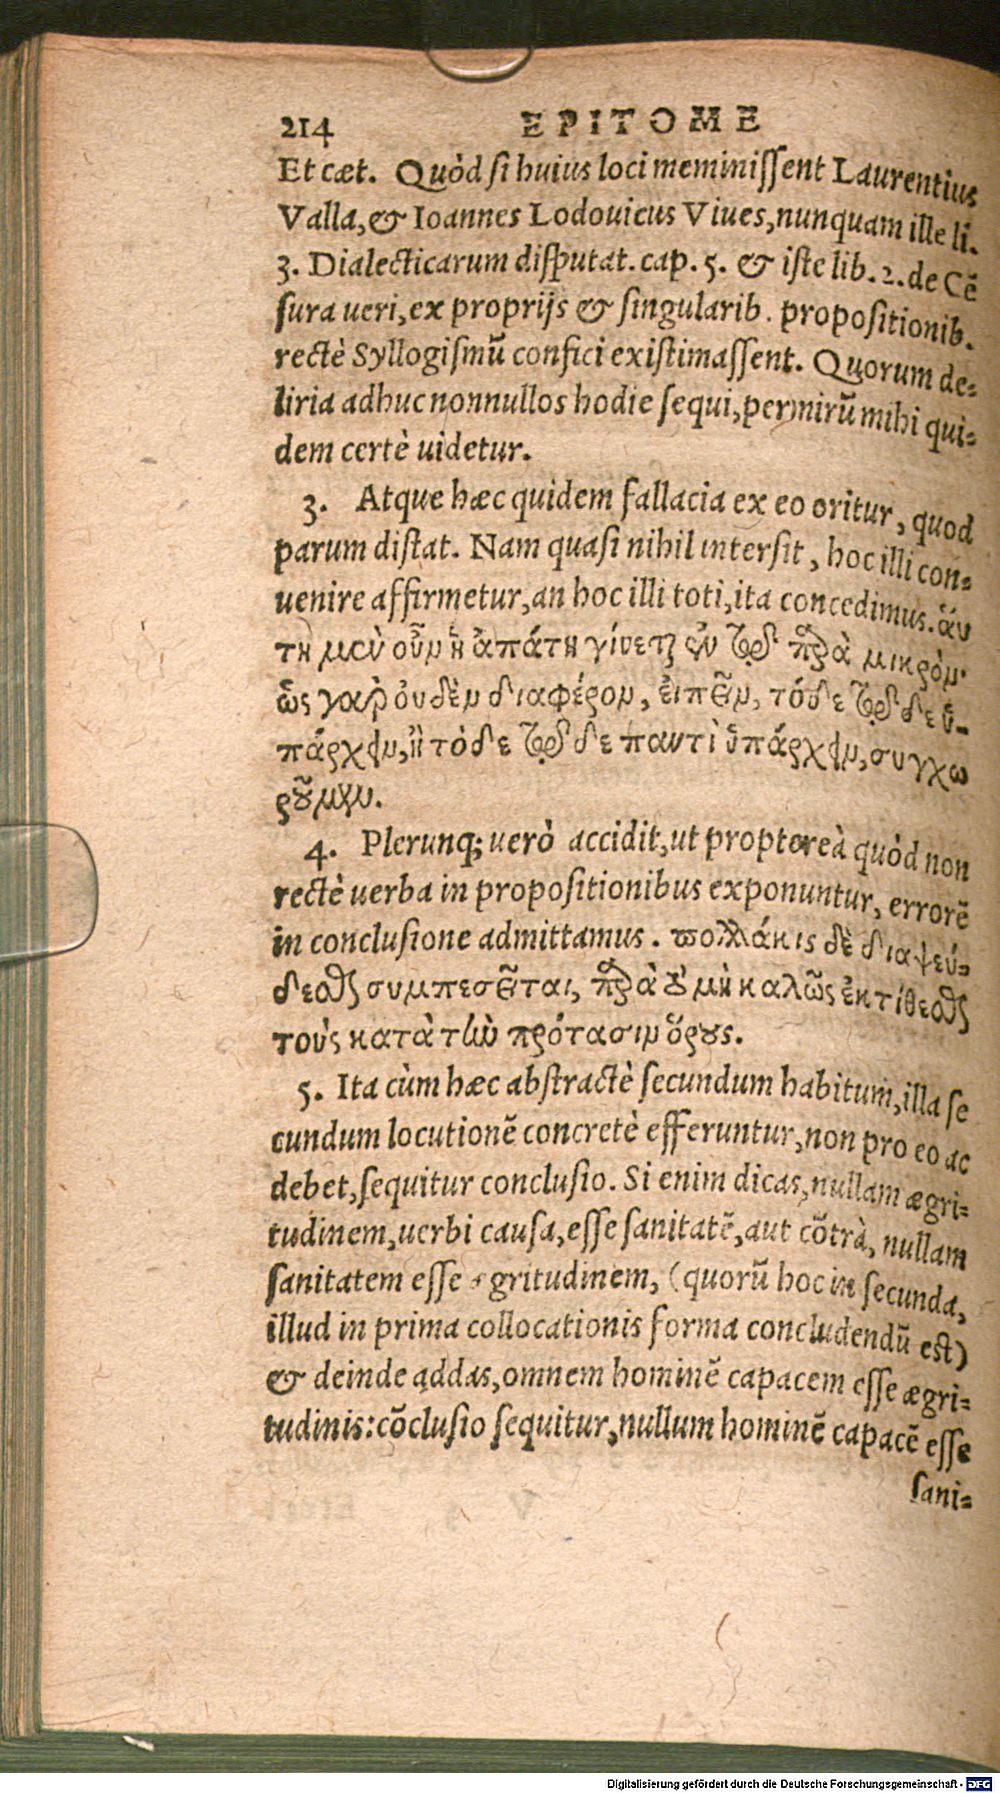 214 EPITOME
Et cæt. Quòd si huius loci meminissent Laurentius
Valla, & Ioannes Lodouicus Viues, nunquam ille li.
3. Dialecticarum disputat. cap. 5. & iste lib. 2. de Cē
sura ueri, ex proprijs & singularib. propositionib.
rectè Syllogismū confici existimassent. Quorum de-
liria adhuc nonnullos hodie sequi, permirū mihi qui-
dem certè uidetur.
3. Atque hæc quidem fallacia ex eo oritur, quod
parum distat. Nam quasi nihil intersit, hoc illi con-
uenire affirmetur, an hoc illi toti, ita concedimus. ἅυ
τη μὲν οὖν ἡ ἀπάτη γίνεται ἐν τῷ παρὰ μικρὸν.
ὡς γαρ οὐδὲν διαφέρον, ἐιπεῖν, τόδε τῷδε ὑ-
πάρχειν, ἢ τόδε τῷδε παντὶ ὑπάρχειν, συγχω
ροῦμεν.
4. Plerunq; uerò accidit, ut proptereà quòd non
rectè uerba in propositionibus exponuntur, errorē
in conclusione admittamus. πολλάκις δὲ διαψεύ-
δεσθαι συμπεσεῖται, παρὰ τὸ μὴ καλῶς ἐκτίθεσθαι
τοὺς κατὰ τὴν πρότασιν ὅρους.
5. Ita cùm hæc abstractè secundum habitum, illa se
cundum locutionē concretè efferuntur, non pro eo ac
debet, sequitur conclusio. Si enim dicas, nullam ægri-
tudinem, uerbi causa, esse sanitatē, aut cōtrà, nullam
sanitatem esse ægritudinem, (quorū hoc in secunda,
illud in prima collocationis forma concludendū est)
& deinde addas, omnem hominē capacem esse ægri-
tudinis: cōclusio sequitur, nullum hominē capacē esse
sani-
Digitalisierung gefördert durch die Deutsche Forschungsgemeinschaft - DFG